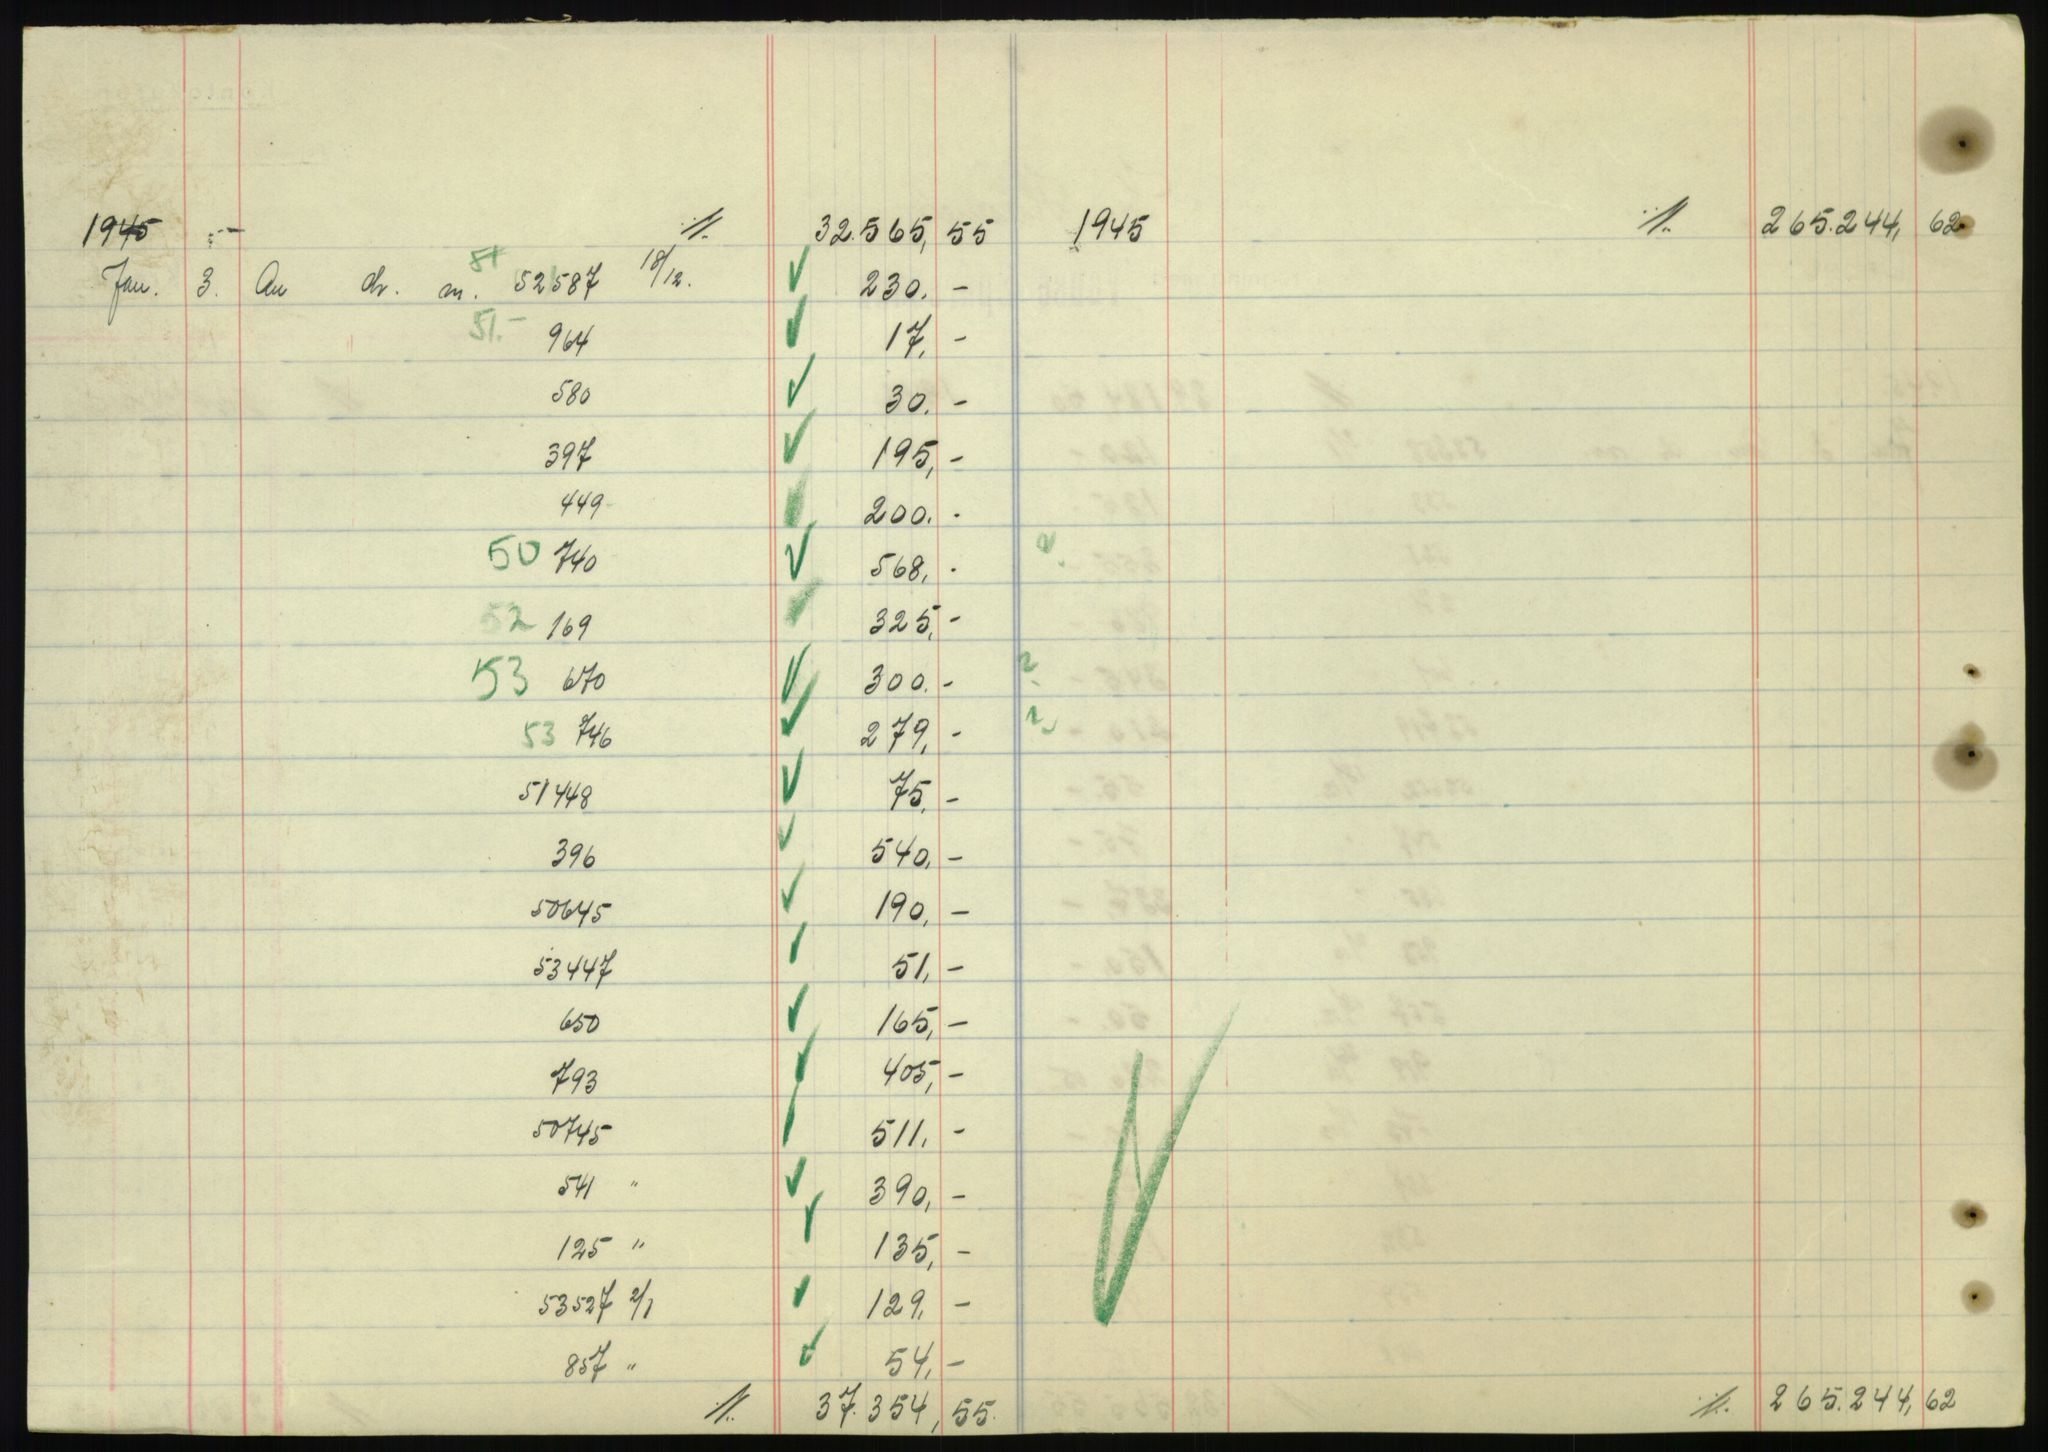 1945 ·/· 32.565,55
Jan. 3. An chr. m. 51 52587 18/12. 230.-
51.- 964 17,-
580 30.-
397 195,-
449 200.-
50 740 568,- ?
52 169 325,-
53 670 300.- ?
53 746 279,- ?
51448 75,-
396 540,-
50645 190,-
53447 51,-
650 165,-
793 405,-
50745 511.-
541 " 390,-
125 " 135,-
53527 2/1 129,-
857 " 54,-
·/· 37.354,55.
1945 ·/· 265.244,62
·/· 265.244,62